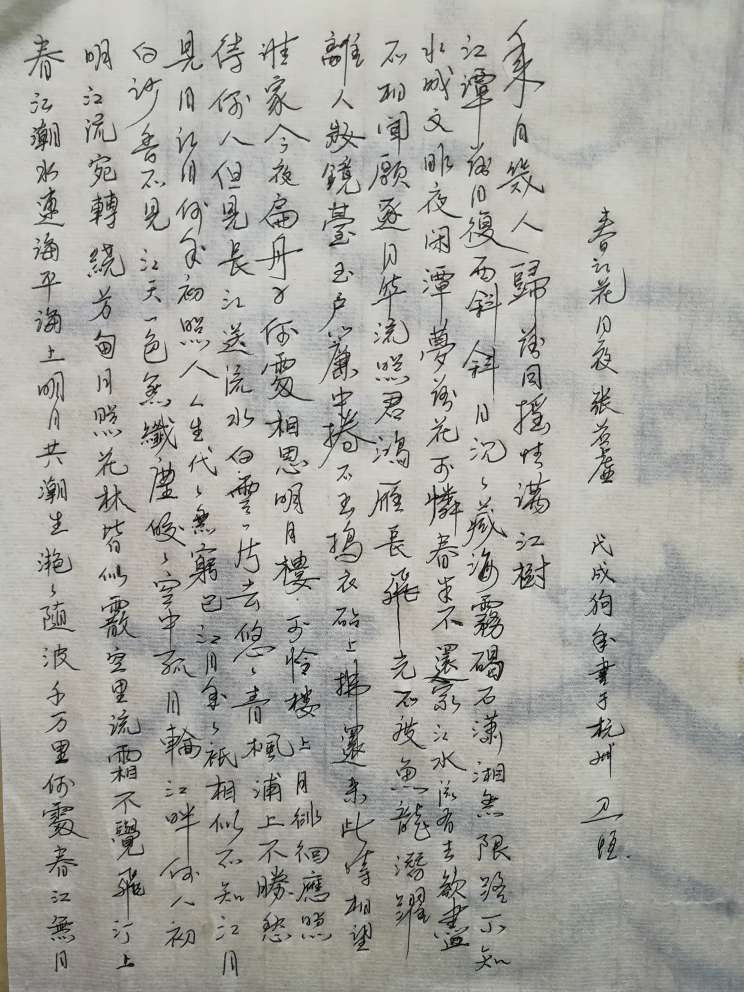 春江潮水連海平海上明月共潮生灧々隨波千万里何處春江無月
明江流宛轉繞芳甸月照花林皆似霰空里流霜不覺飛汀上
白沙看不見江天一色無纖塵皎々空中孤月輪江畔何人初
見月江月何年初照人々生代々無窮已江月年々祇相似不知江月
待何人但見長江送流水白雲一片去悠々青楓浦上不勝愁
誰家今夜扁舟子何處相思明月樓可怜樓上月徘徊應照
離人妝鏡臺玉户簾中捲不去搗衣砧上拂還來此時相望
不相聞願逐月華流照君鴻雁長飛光不度魚龍潛躍
水成文昨夜闲潭夢落花可憐春半不還家江水流春去欲盡
江潭落月復西斜斜月沉々藏海霧碣石瀟湘無限路不知
乘月幾人歸落月搖情滿江樹
春江花月夜 張若虛 戊戌狗年書于杭州